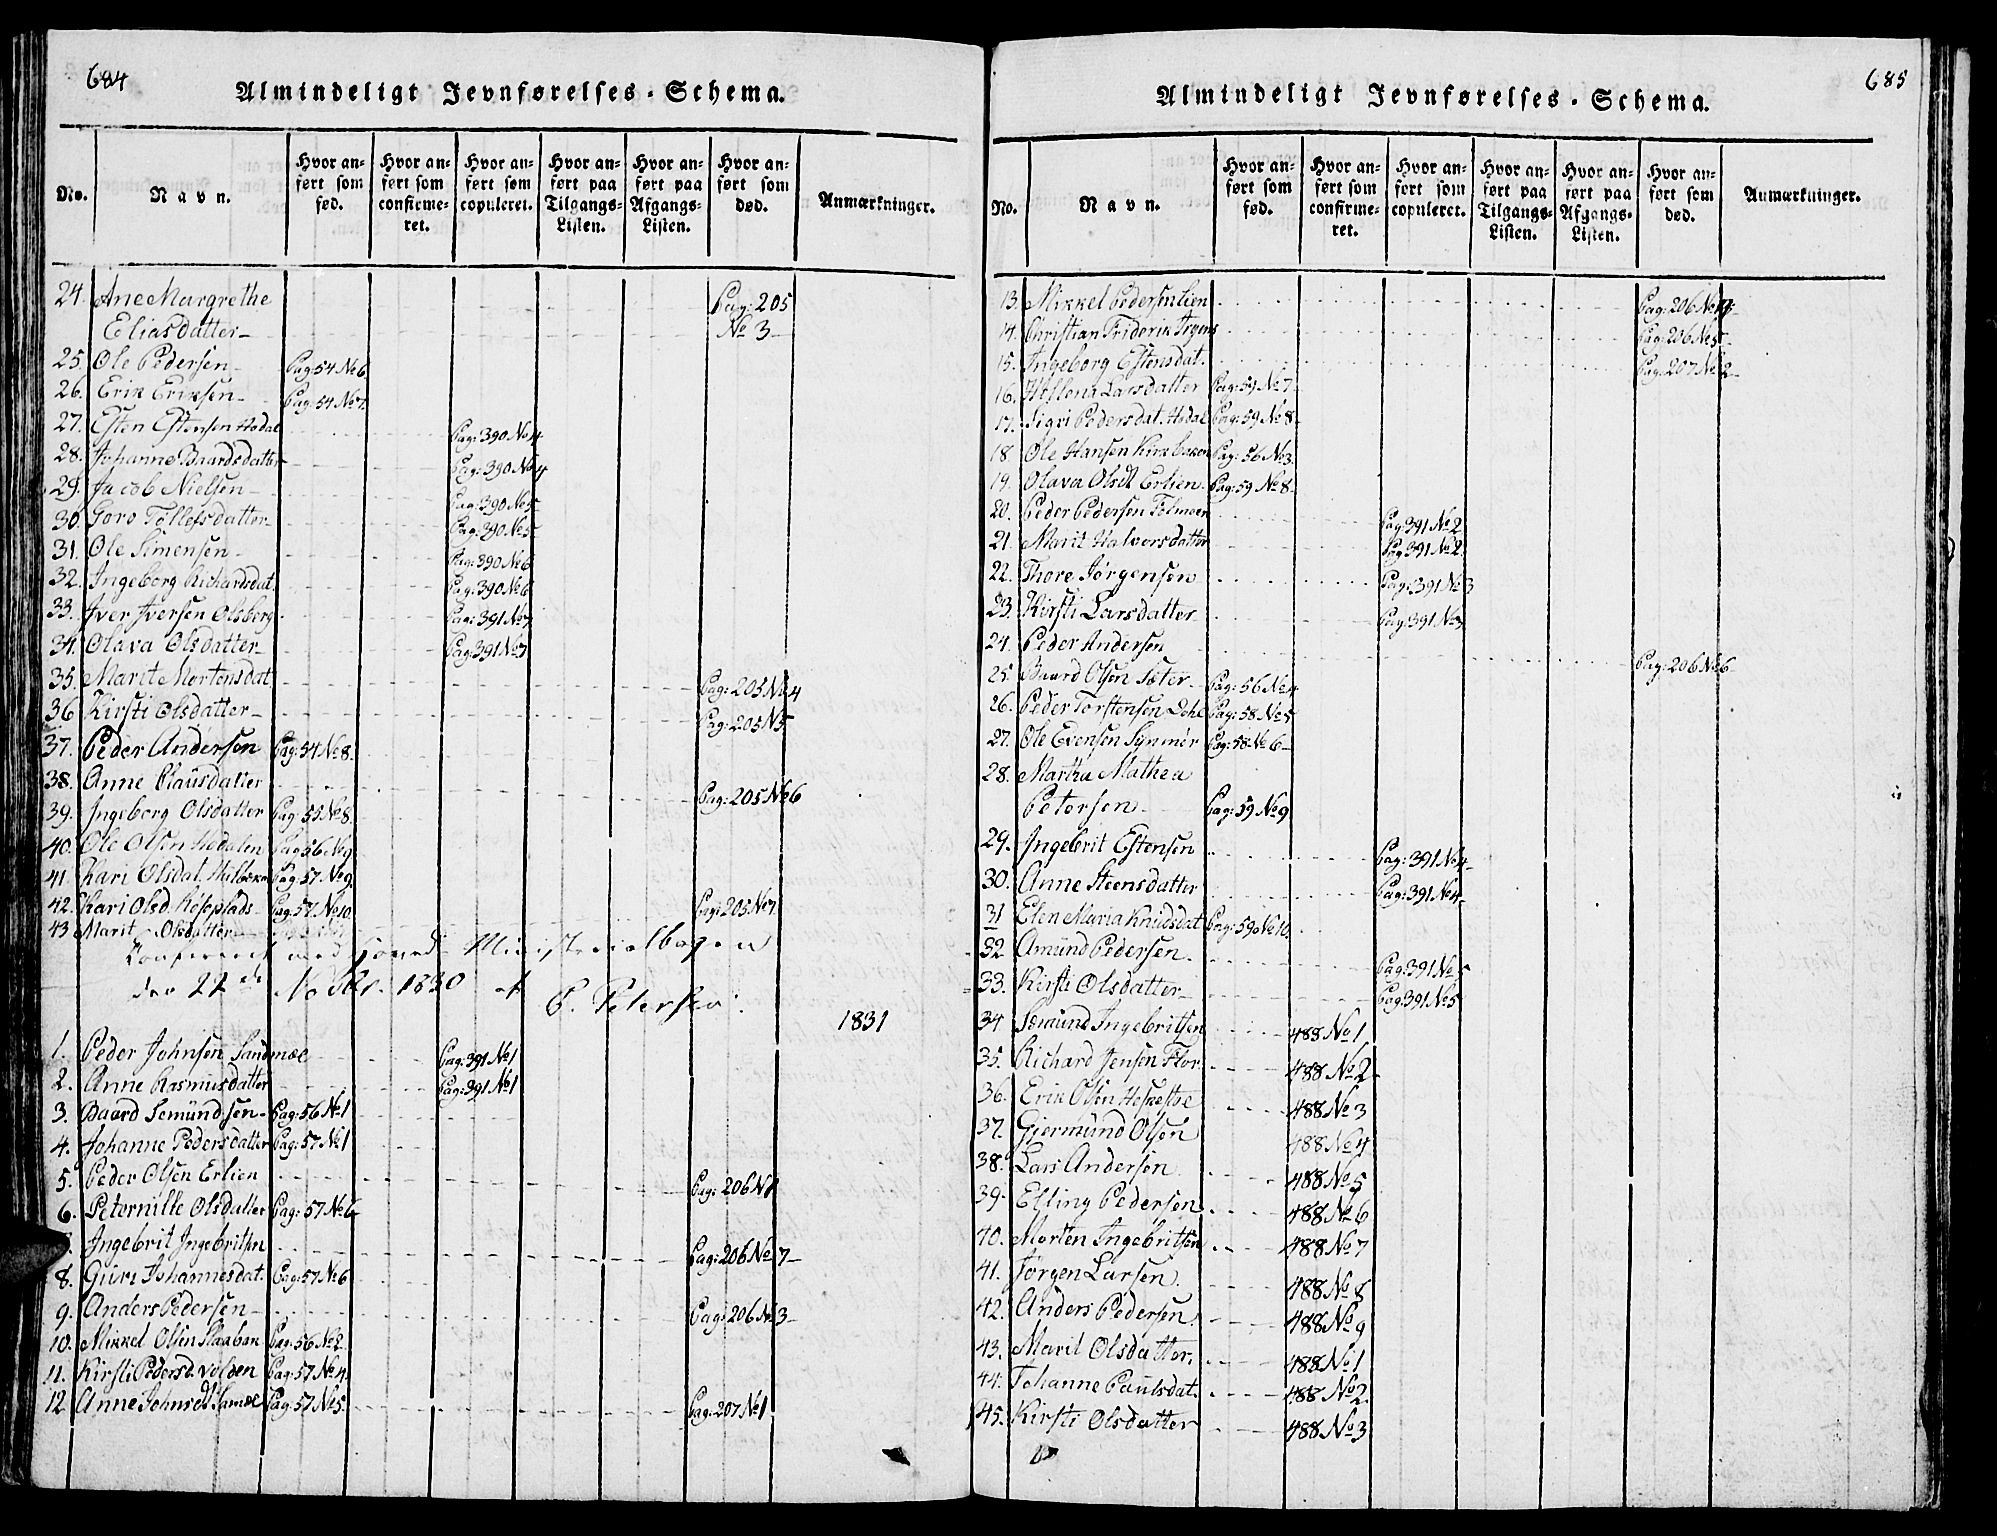 684
Almindeligt Jevnførelses-Schema.
No. Navn. Hvor anført som fød. Hvor anført som confirmeret. Hvor anført som copuleret. Hvor anført paa Tilgangs-Listen. Hvor anført paa Afgangs-Listen. Hvor anført som død. Anmærkninger.
24. Ane Margrethe Pag: 205
Eliasdatter No 3
25. Ole Pedersen Pag: 54 No 6
26. Erik Eriksen Pag: 54 No 7
27. Esten Estensen Hodal Pag: 390 No 4
28. Johanne Baardsdatter Pag: 390 No 4
29. Jacob Nielsen Pag: 390 No 5
30. Goro Tollefsdatter Pag: 390 No 5
31. Ole Simensen Pag: 390 No 6
32. Ingeborg Richardsdat. Pag: 390 No 6
33. Iver Iversen Olsberg Pag: 391 No 7
34. Olava Olsdatter Pag: 391 No 7
35. Marit Mortensdat Pag: 205 No 4
36 Kirsti Olsdatter Pag: 205 No 5
37. Peder Andersen Pag: 54 No 8
38. Anne Clausdatter Pag: 205 No 6
39. Ingeborg Olsdatter Pag: 55 No 8
40. Ole Olsen Hodalen Pag: 56 No 9
41. Kari Olsdat. Pag: 57 No 9
42. Kari Olsd. Pag: 57 No 10 Pag: 205 No 7
43 Marit Olsdatter
Confereret med Hoved Ministerialbogen
den 22de Novbr. 1830 af P. Petersen
1831
1. Peder Johnsen Sandmoe Pag: 391 No 1
2. Anne Rasmusdatter Pag: 391 No 1
3. Baard Semundsen Pag: 56 No 1
4. Johanne Pedersdatter Pag: 57 No 1
5. Peder Olsen Erlien Pag: 206 No 1
6. Peternille Olsdatter Pag: 57 No 6
Ingebrit Ingebritsen Pag: 206 No 7
8. Guri Johannesdat. Pag: 57 No 6
9. Anders Pedersen Pag: 206 No 3
10. Mikkel Olsen Pag: 56 No 2
11. Kirsti Pedersd. Volden Pag: 57 No 4
12 Anne Johnsdt Pag: 57 No 5 Pag: 207 No 1
685
Almindeligt Jevnførelses-Schema.
No. Navn. Hvor anført som fød. Hvor anført som confirmeret. Hvor anført som copuleret. Hvor anført paa Tilgangs-Listen. Hvor anført paa Afgangs-Listen. Hvor anført som død. Anmærkninger.
13. Mikkel Pedersen Lien Pag: 206 No 4
14. Christian Friderik Pag: 206 No 5
15. Ingeborg Estensdat. Pag: 207 No 2
16. Hellena Larsdatter Pag: 59 No 7
17. Sigri Pedersdat. Hodal Pag: 59 No 8
18 Ole Hansen Pag: 56 No 3
19. Olava Olsdt Erlien Pag: 59 No 8
20. Peder Pedersen Tolmoen Pag: 391 No 2
21. Marit Halvorsdatter Pag: 391 No 2
22. Thore Jørgensen Pag: 391 No 3
23. Kirsti Larsdatter Pag: 391 No 3
24. Peder Andersen Pag: 206 No 6
25. Baard Olsen Sæter Pag: 56 No 4
26. Peder Torstensen Pag: 58 No 5
27. Ole Evensen Synmør Pag: 58 No 6
28. Martha Mathea
Petersen Pag: 59 No 9
29. Ingebrit Estensen Pag: 391 No 4
30. Anne Steensdatter Pag: 391 No 4
31 Elen Maria Knudsdat Pag: 59 No 10
32 Amund Pedersen Pag: 391 No 5
33. Kirsti Olsdatter Pag: 391 No 5
34 Semund Ingebritsen 488 No 1
35. Richard Jensen Flor 488 No 2
36. Erik Olsen 488 No 3
37. Gjermund Olsen 488 No 4
38. Lars Andersen 488 No 5
39. Elling Pedersen 488 No 6
40. Morten Ingebritsen 488 No 7
41. Jørgen Larsen 488 No 8
42. Anders Pedersen 488 No 9
43. Marit Olsdatter 488 No 1
44. Johanne Paulsdat. 488 No 2
45. Kirsti Olsdatter 488 No 3